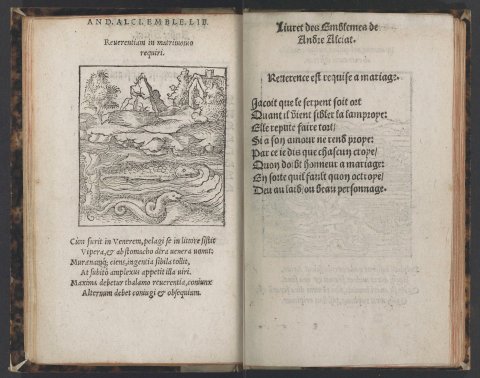 AND. ALCI. EMBLE. LIB.
Reuerentiam in matrimonio
requiri.
Cum furit in Venerem, pelagi se in littore sistit
Vipera, & ab stomacho dira venena vomit:
Murænamq́; ciens, ingentia sibila tollit,
At subitò amplexus appetit illa viri.
Maxima debetur thalamo reuerentia, coniunx
Alternum debet coniugi & obsequium.
Liuret des Emblemes de
Andre Alciat.
Reuerence est requise a mariage.
Jacoit que le serpent soit ort
Quant il vient sibler la lamproye:
Elle repute faire tort,
Si a son amour ne rend proye:
Par ce ie dis que chascun croye,
Quon doibt honneur a mariage:
En sorte quil fault quon octroye,
Deu au laid, ou beau personnage.